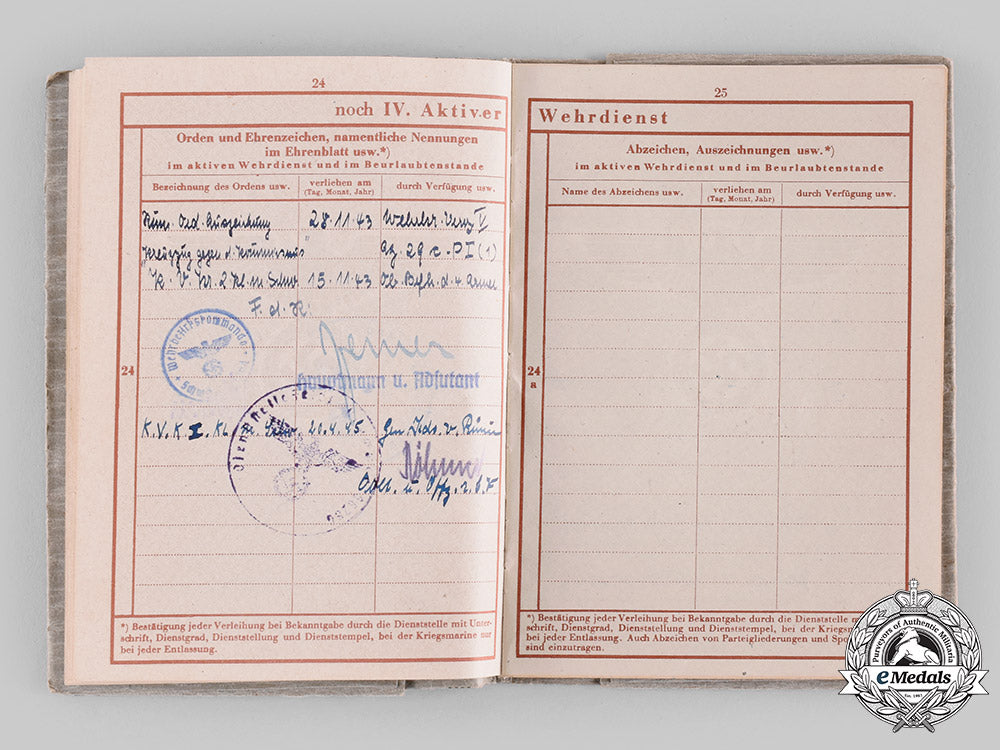 24
noch IV. Aktiver
Orden und Ehrenzeichen, namentliche Nennungen
im Ehrenblatt usw.*)
im aktiven Wehrdienst und im Beurlaubtenstande
Bezeichnung des Ordens usw.
verliehen am
(Tag, Monat, Jahr)
durch Verfügung usw.
Rum. Ord. Auszeichnung 28.11.43 V
"Kreuzzug gegen d. Kommunismus" 29 c. PI (1)
K. V. K. 2 Kl. m. Schw. 15.11.43 Ob. Bfh. d. 4 Armee
F. d. R.
Wehrbezirkskommando
24
Hauptmann u. Adjutant
Dienststelle
K. V. K. I. Kl. m. Schw. 20.4.45 Gen. Kdo. v.
u.
*) Bestätigung jeder Verleihung bei Bekanntgabe durch die Dienststelle mit Unter-
schrift, Dienstgrad, Dienststellung und Dienststempel, bei der Kriegsmarine nur
bei jeder Entlassung.
25
Wehrdienst
Abzeichen, Auszeichnungen usw.*)
im aktiven Wehrdienst und im Beurlaubtenstande
Name des Abzeichens usw.
verliehen am
(Tag, Monat, Jahr)
durch Verfügung usw.
24
a
*) Bestätigung jeder Verleihung bei Bekanntgabe durch die Dienststelle
schrift, Dienstgrad, Dienststellung und Dienststempel, bei der Kriegsm
bei jeder Entlassung. Auch Abzeichen von Parteigliederungen und Spo
sind einzutragen.
Purveyors of Authentic Militaria
eMedals